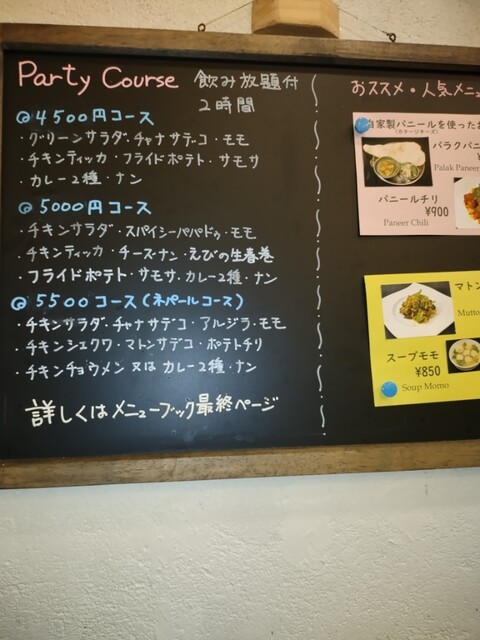 Party Course 飲み放題付
2時間
◎4500円コース
・グリーンサラダ・チャナサデコ・モモ
・チキンティッカ・フライドポテト・サモサ
・カレー2種・ナン
◎5000円コース
・チキンサラダ・スパイシーパパドゥ・モモ
・チキンティッカ・チーズ・ナン・えびの生春巻
・フライドポテト・サモサ・カレー2種・ナン
◎5500コース(ネパールコース)
・チキンサラダ・チャナサデコ・アルジラ・モモ
・チキンシェクワ・マトンサデコ・ポテトチリ
・チキンチョウメン 又は カレー2種・ナン
詳しくはメニューブック最終ページ
おススメ・人気メニュ
自家製パニールを使ったお
(カテージチーズ)
パラクパニ
Palak Paneer
パニールチリ
¥900
Paneer Chili
マトン
Mutto
スープモモ
¥850
Soup Momo